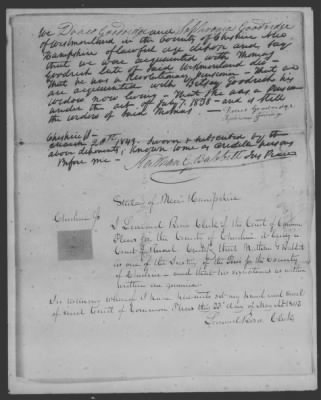 We Draco Goodridge and Sophronia Goodridge
of Westmorland in the County of Cheshire New
Hampshire of lawful age depose and say
that we were acquainted with Thomas
Goodrich late of said Westmorland decd
That he was a Revolutionary pensioner - That we
are acquainted with Betsey Goodrich his
widow now living - That she was a pensioner
under the act of July 7 1838 - and is still
the widow of said Thomas -
Cheshire ss
March 20th 1843. Sworn & subscribed by the
above deponents, known to me as credible persons
Before me - Nathan G Babbitt Jus Peace
State of New Hampshire
Cheshire ss
I Leonard Biscoe Clerk of the Court of Common
Pleas for the County of Cheshire
that Nathan G Babbitt
is one of the Justices of the Peace for the County
of Cheshire and that his signature as within
written are genuine
In testimony whereof I have hereunto set my hand and seal
of said Court of Common Pleas this 22d day of March 1843
Leonard Biscoe Clerk